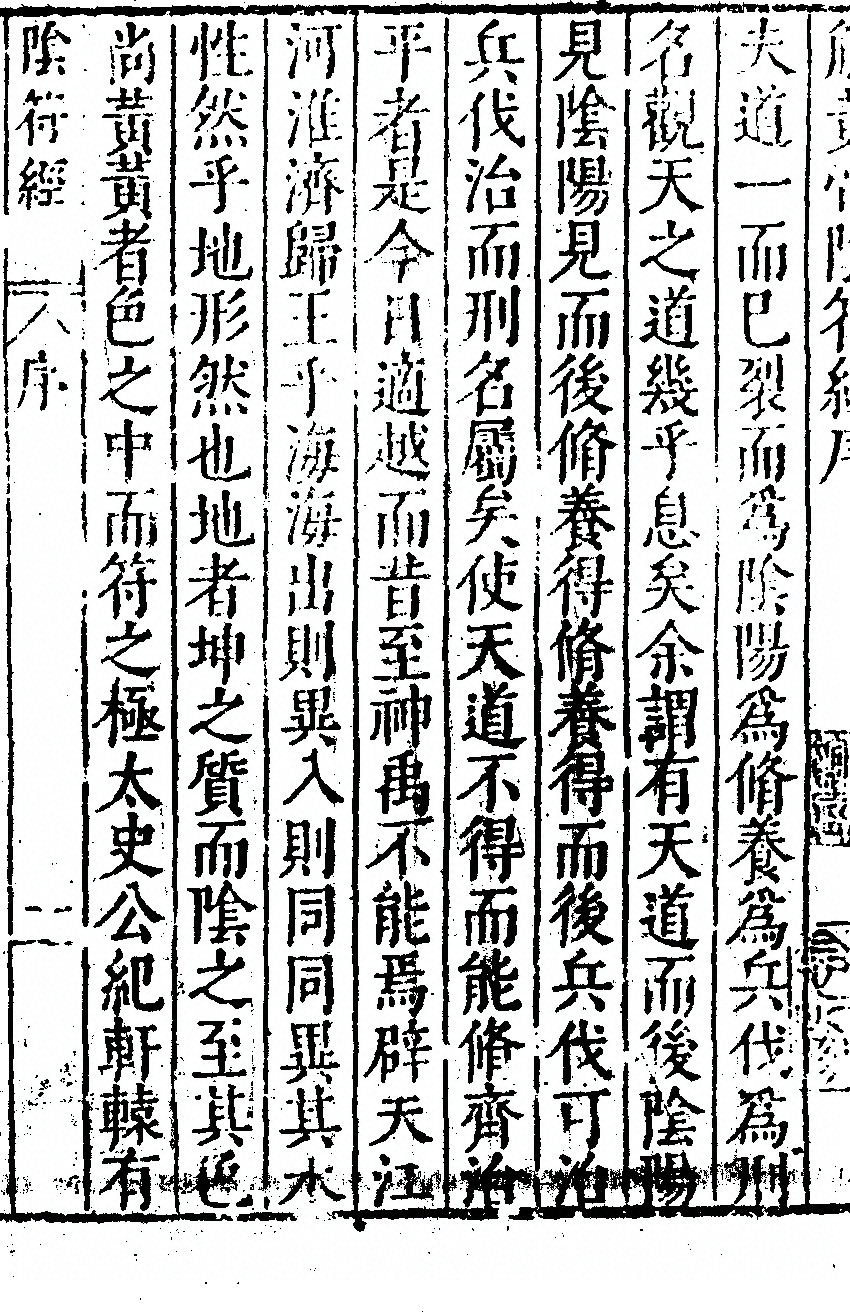 陰符經序
夫道一而已裂而爲陰陽爲脩養爲兵伐爲刑
名觀天之道幾乎息矣余謂有天道而後陰陽
見陰陽見而後脩養得脩養得而後兵伐可治
兵伐治而刑名屬矣使天道不得而能脩齊治
平者是今日適越而昔至神禹不能焉辟天江
河淮濟歸王乎海海出則異入則同同異其水
性然乎地形然也地者坤之質而陰之至其色
尚黃黃者色之中而符之極太史公紀軒轅有
陰符經 序 一